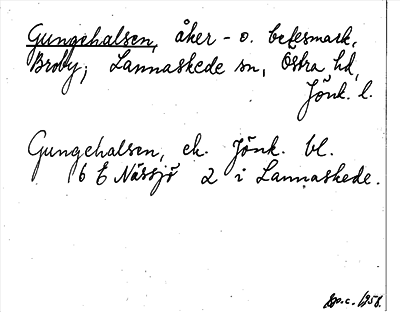 Gungehalsen, åker- o. betesmark,
Broby; Lannaskede sn, Östra hd,
Jönk. l.
Gungehalsen, ek. Jönk. bl.
6 E Nässjö 2 i Lannaskede.
1958.